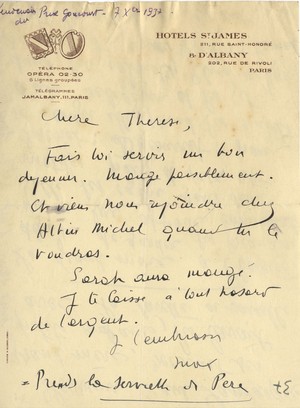 du Prix Goncourt - 7 Xbre 1932
HOTELS ST JAMES
211, RUE SAINT-HONORÉ
& D'ALBANY
202, RUE DE RIVOLI
PARIS
TÉLÉPHONE
OPÉRA 02-30
6 Lignes groupées
TÉLÉGRAMMES
JAMALBANY-111-PARIS
Chère Thérèse,
Fais toi servir un bon
dejeuner. Mange paisiblement.
Et viens nous rejoindre chez
Albin Michel quand tu le
voudras.
Sarah aura mangé.
Je te laisse à tout hasard
de l'argent.
Je t'embrasse
Prends la serviette de Père